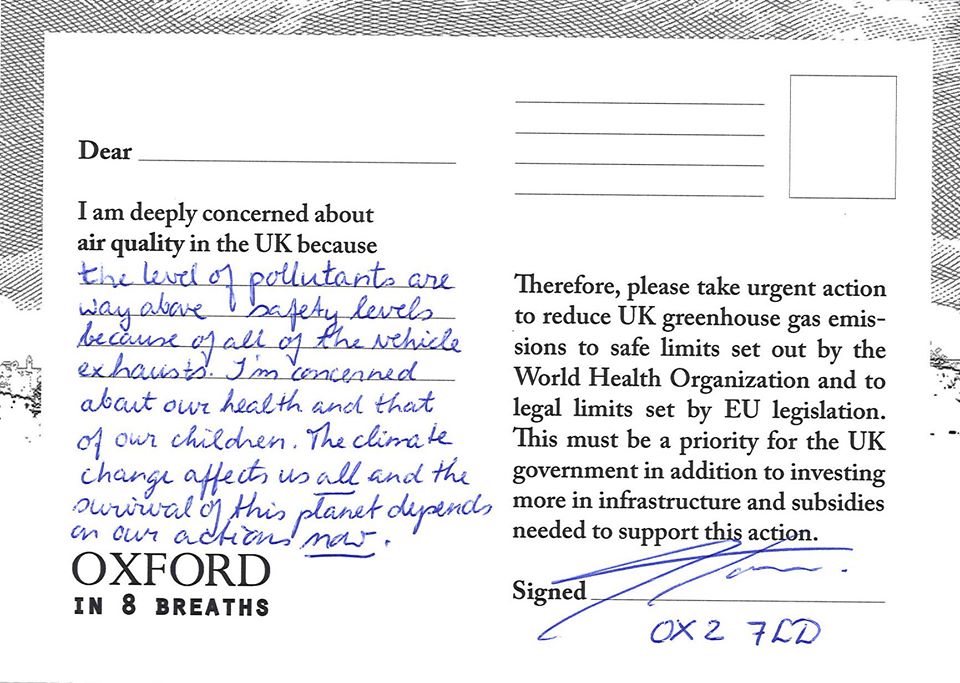 Dear
I am deeply concerned about
air quality in the UK because
the level of pollutants are
way above safety levels
because of all of the vehicle
exhausts. I'm concerned
about our health and that
of our children. The climate
change affects us all and the
survival of this planet depends
on our actions now.
OXFORD
IN 8 BREATHS
Therefore, please take urgent action
to reduce UK greenhouse gas emis-
sions to safe limits set out by the
World Health Organization and to
legal limits set by EU legislation.
This must be a priority for the UK
government in addition to investing
more in infrastructure and subsidies
needed to support this action.
Signed
OX2 7LD